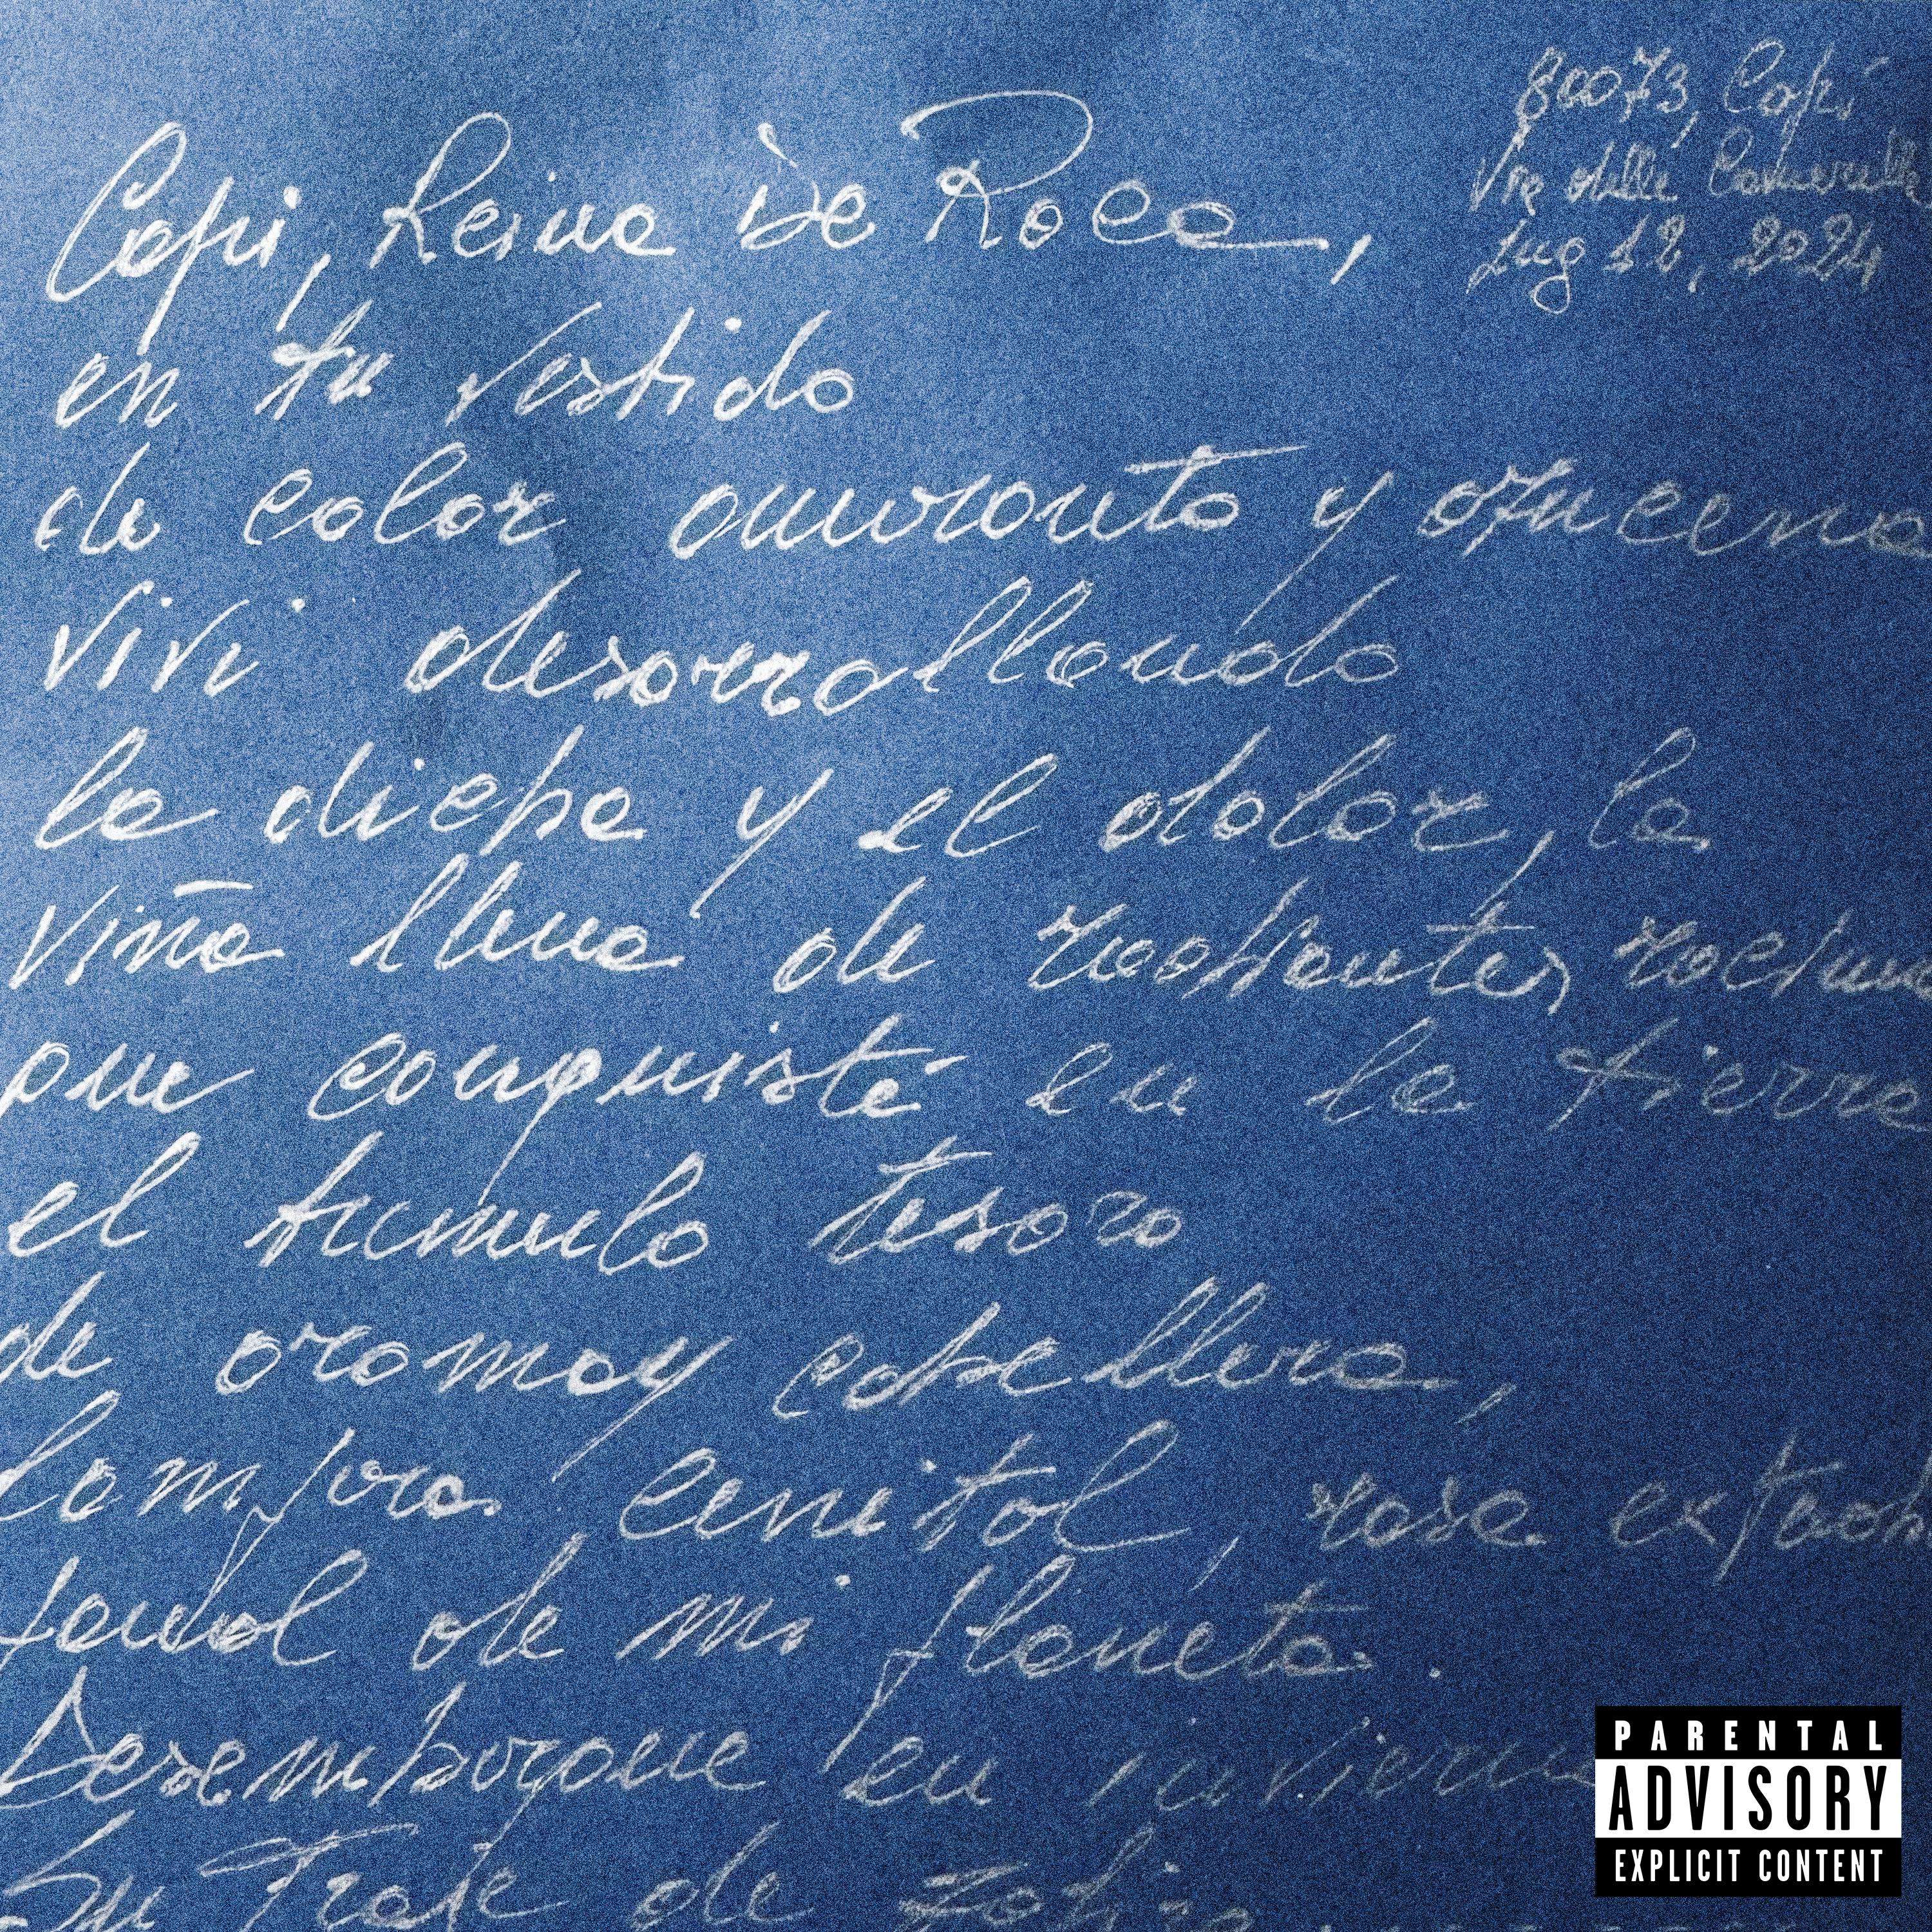 80073, Capri
Via delle Camerelle
Lug 12, 2024
Capri, Reina De Roca,
en tu vestido
de color amaranto y azucena
viví desarrollando
la dicha y el dolor, la
viña llena de radiantes racimos
que conquisté en la tierra
el túmulo tesoro
de aroma y cabellera,
lámpara cenital, rosa extend
panal de mi planeta.
Desembarqué en invierno
Su traje de zafiro
PARENTAL
ADVISORY
EXPLICIT CONTENT